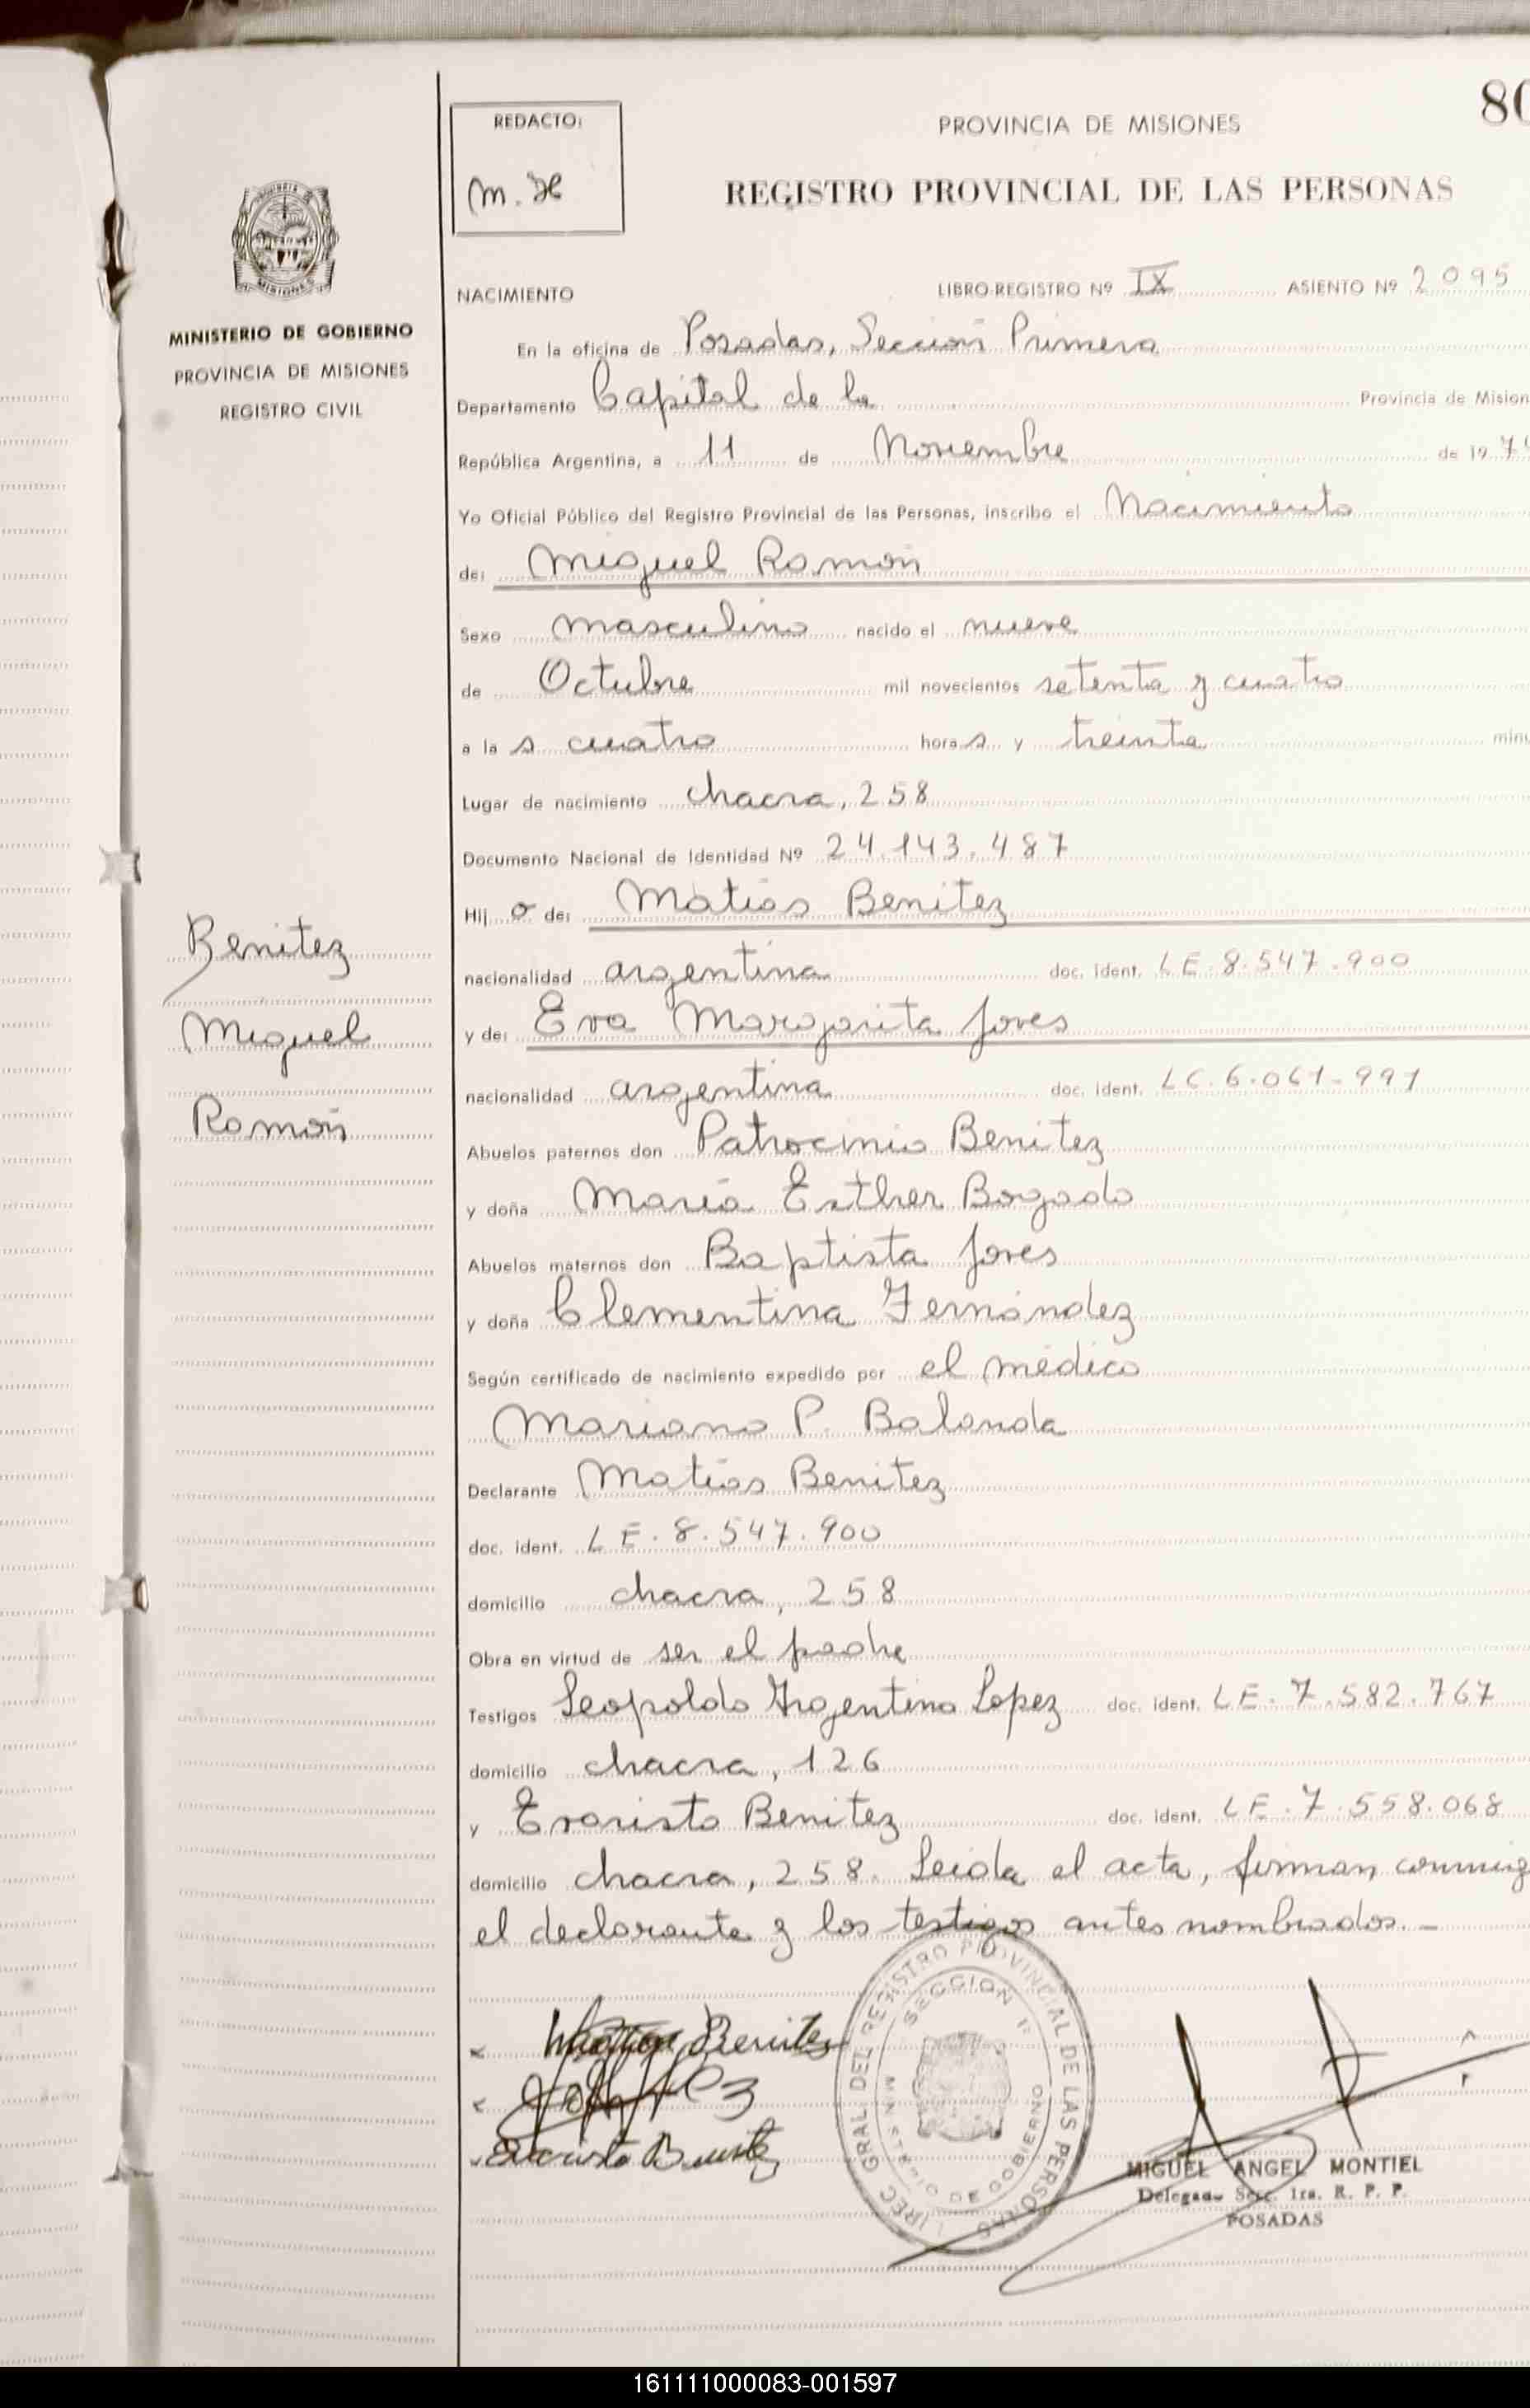 80
REDACTO:
m. H
PROVINCIA DE MISIONES
REGISTRO PROVINCIAL DE LAS PERSONAS
MINISTERIO DE GOBIERNO
PROVINCIA DE MISIONES
REGISTRO CIVIL
NACIMIENTO LIBRO-REGISTRO Nº IX ASIENTO Nº 2095
En la oficina de Posadas, Sección Primera
Departamento Capital de la Provincia de Mision
República Argentina, a 11 de Noviembre de 197
Yo Oficial Público del Registro Provincial de las Personas, inscribo el Nacimiento
de: Miguel Ramón
Sexo masculino nacido el nueve
de Octubre mil novecientos setenta y cuatro
a la s cuatro hora s y treinta minu
Lugar de nacimiento chacra, 258
Documento Nacional de Identidad Nº 24.143.487
Hij o de: Matías Benitez
nacionalidad argentina doc. ident. LE.8.547.900
y de: Eva Margarita Joves
nacionalidad argentina doc. ident. LC.6.061-991
Abuelos paternos don Patrocinio Benitez
y doña María Esther Bogado
Abuelos maternos don Baptista Joves
y doña Clementina Fernández
Según certificado de nacimiento expedido por el médico
Mariano P. Balanda
Declarante Matías Benitez
doc. ident. LE.8.547.900
domicilio chacra, 258
Obra en virtud de ser el padre
Testigos Leopoldo Argentino Lopez doc. ident. LE.7.582.767
domicilio chacra, 126
y Evaristo Benitez doc. ident. LE.7.558.068
domicilio chacra, 258. Leida el acta, firman conmig
el declarante y los testigos antes nombrados.-
Benitez
Miguel
Ramón
Matias Benitez
Evaristo Benitez
DIREC. GRAL. DEL REGISTRO PROVINCIAL DE LAS PERSONAS
SECCION 1ª
MINISTERIO DE GOBIERNO
MIGUEL ANGEL MONTIEL
Delegado Secc. 1ra. R. P. P.
POSADAS
161111000083-001597